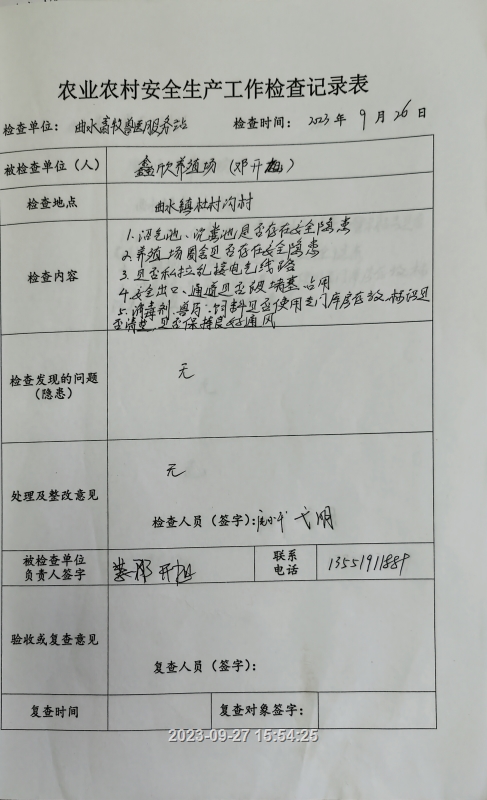 农业农村安全生产工作检查记录表
检查单位： 曲水畜牧兽医服务站 检查时间： 2023年 9 月 26 日
被检查单位（人） 鑫欣养殖场（邓开旭）
检查地点 曲水镇杜村沟村
检查内容
1.沼气池、沈粪池是否存在安全隐患
2.养殖场圈舍是否存在安全隐患
3.是否私拉乱接电气线路
4.安全出口、通道是否被堵塞、占用
5.消毒剂、兽药、饲料是否使用专门库房存放，标识是
否清楚，是否保持良好通风
检查发现的问题
（隐患）
无
处理及整改意见
无
检查人员（签字）：
被检查单位
负责人签字
邓开旭
联系
电话
13551911889
验收或复查意见
复查人员（签字）：
复查时间 复查对象签字：
2023-09-27 15:54:25